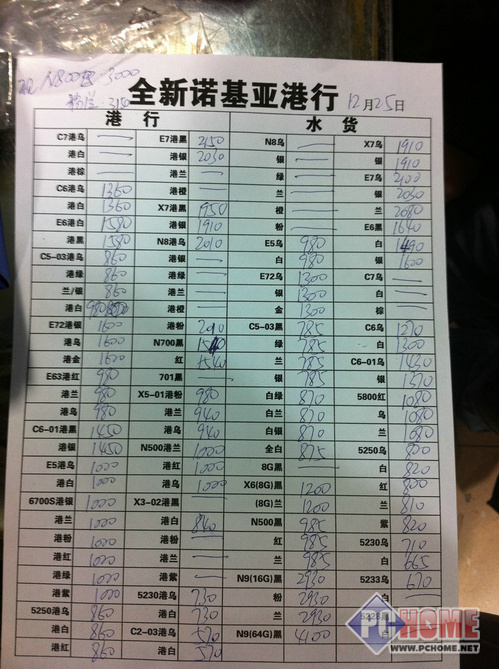 N800 3000
全新诺基亚港行 12月25日
港行 水货
C7港乌 — E7港黑 2150 N8乌 — X7乌 1910
港白 — 港银 2030 银 — 银 1910
港棕 — 港兰 — 绿 — E7乌 2100
C6港乌 1360 港橙 — 兰 — 银 2030
港白 1360 X7港黑 1950 橙 — 兰 2080
E6港白 1580 港银 1910 粉 — E6黑 1640
港黑 1580 N8港乌 2010 E5乌 980 白 1490
C5-03港乌 860 港银 — 白 980 银 1600
港绿 860 港绿 — E72乌 1300 C7乌 —
兰/银 860 港兰 — 银 1300 白 —
港白 980 港橙 — 金 1300 棕 —
E72港银 1600 港粉 2010 C5-03黑 785 C6乌 1270
港乌 1600 N700黑 绿 785 白 1300
港金 1620 红 1540 兰 785 C6-01乌 1430
E63港红 980 701黑 — 银 785 银 1370
港兰 980 X5-01港粉 980 白绿 870 5800红 1080
港乌 980 港兰 940 白兰 870 乌 1080
C6-01港黑 1450 港乌 940 白银 870 兰 1080
港银 1450 N500港兰 1000 全白 875 5250乌 800
E5港乌 1000 港红 1000 8G黑 — 白 820
港白 1000 港乌 1000 X6(8G)黑 1200 红 800
6700S港银 1000 X3-02港黑 — (8G)兰 1200 兰 810
港兰 1000 港白 840 N500黑 985 紫 820
港粉 1000 港粉 — 红 985 5230乌 710
港红 1000 港兰 — 兰 985 白 665
港绿 1000 港紫 — N9(16G)黑 2930 5233乌 670
港紫 1000 5230港乌 730 粉 2930 白
5250港乌 860 港白 730 兰 2930
港白 860 C2-03港乌 570 N9(64G)黑 4100
港红 860 港白 570
PCHOME
www.pchome.net